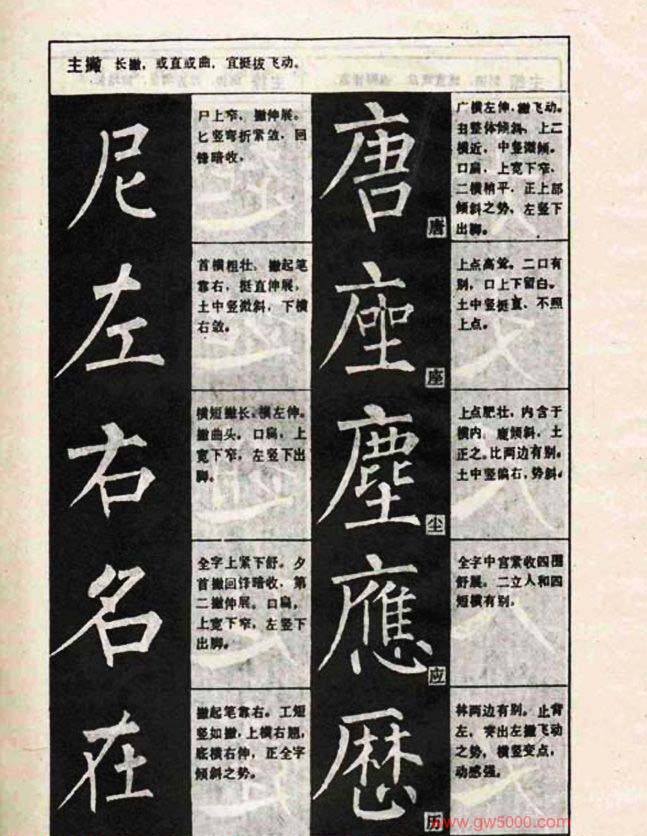 主撇 长撇，或直或曲，宜挺拔飞动。
尼
尸上窄，撇伸展。
匕竖弯折紧敛，回
锋暗收。
左
首横粗壮，撇起笔
靠右，挺直伸展，
土中竖微斜，下横
右敛。
右
横短撇长。横左伸。
撇曲头。口扁，上
宽下窄，左竖下出
脚。
名
全字上紧下舒。夕
首撇回锋暗收，第
二撇伸展。口扁，
上宽下窄，左竖下
出脚。
在
撇起笔靠右。工短
竖如撇，上横右翘，
底横右伸，正全字
倾斜之势。
唐
唐
广横左伸，撇飞动。
整体倾斜，上二
横近，中竖微倾。
口扁，上宽下窄，
二横稍平，正上部
倾斜之势，左竖下
出脚。
座
座
上点高耸。二口有
别，口上下留白。
土中竖挺直，不照
上点。
塵
尘
上点肥壮，内含于
横内，鹿倾斜，土
正之。比两边有别。
土中竖偏右，势斜。
應
应
全字中宫紧收四围
舒展。二立人和四
短横有别。
歷
历
林两边有别。止背
左，突出左撇飞动
之势，横竖变点，
动感强。
www.gw5000.com